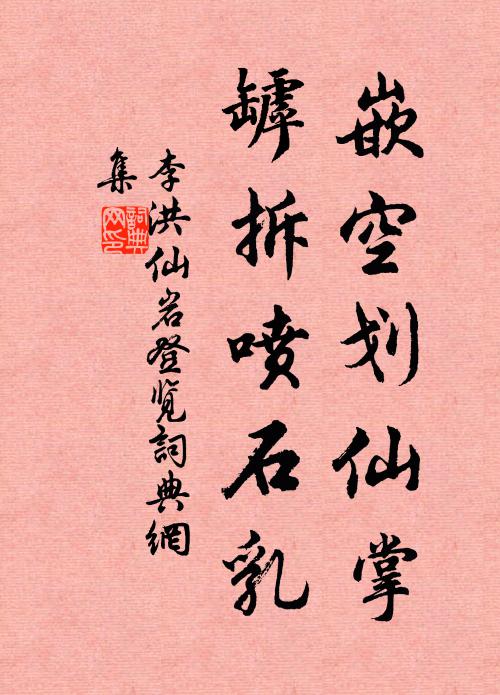 嵌空划仙掌
罅拆喷石乳
李洪仙岩登览詞典網
集
詞典網印